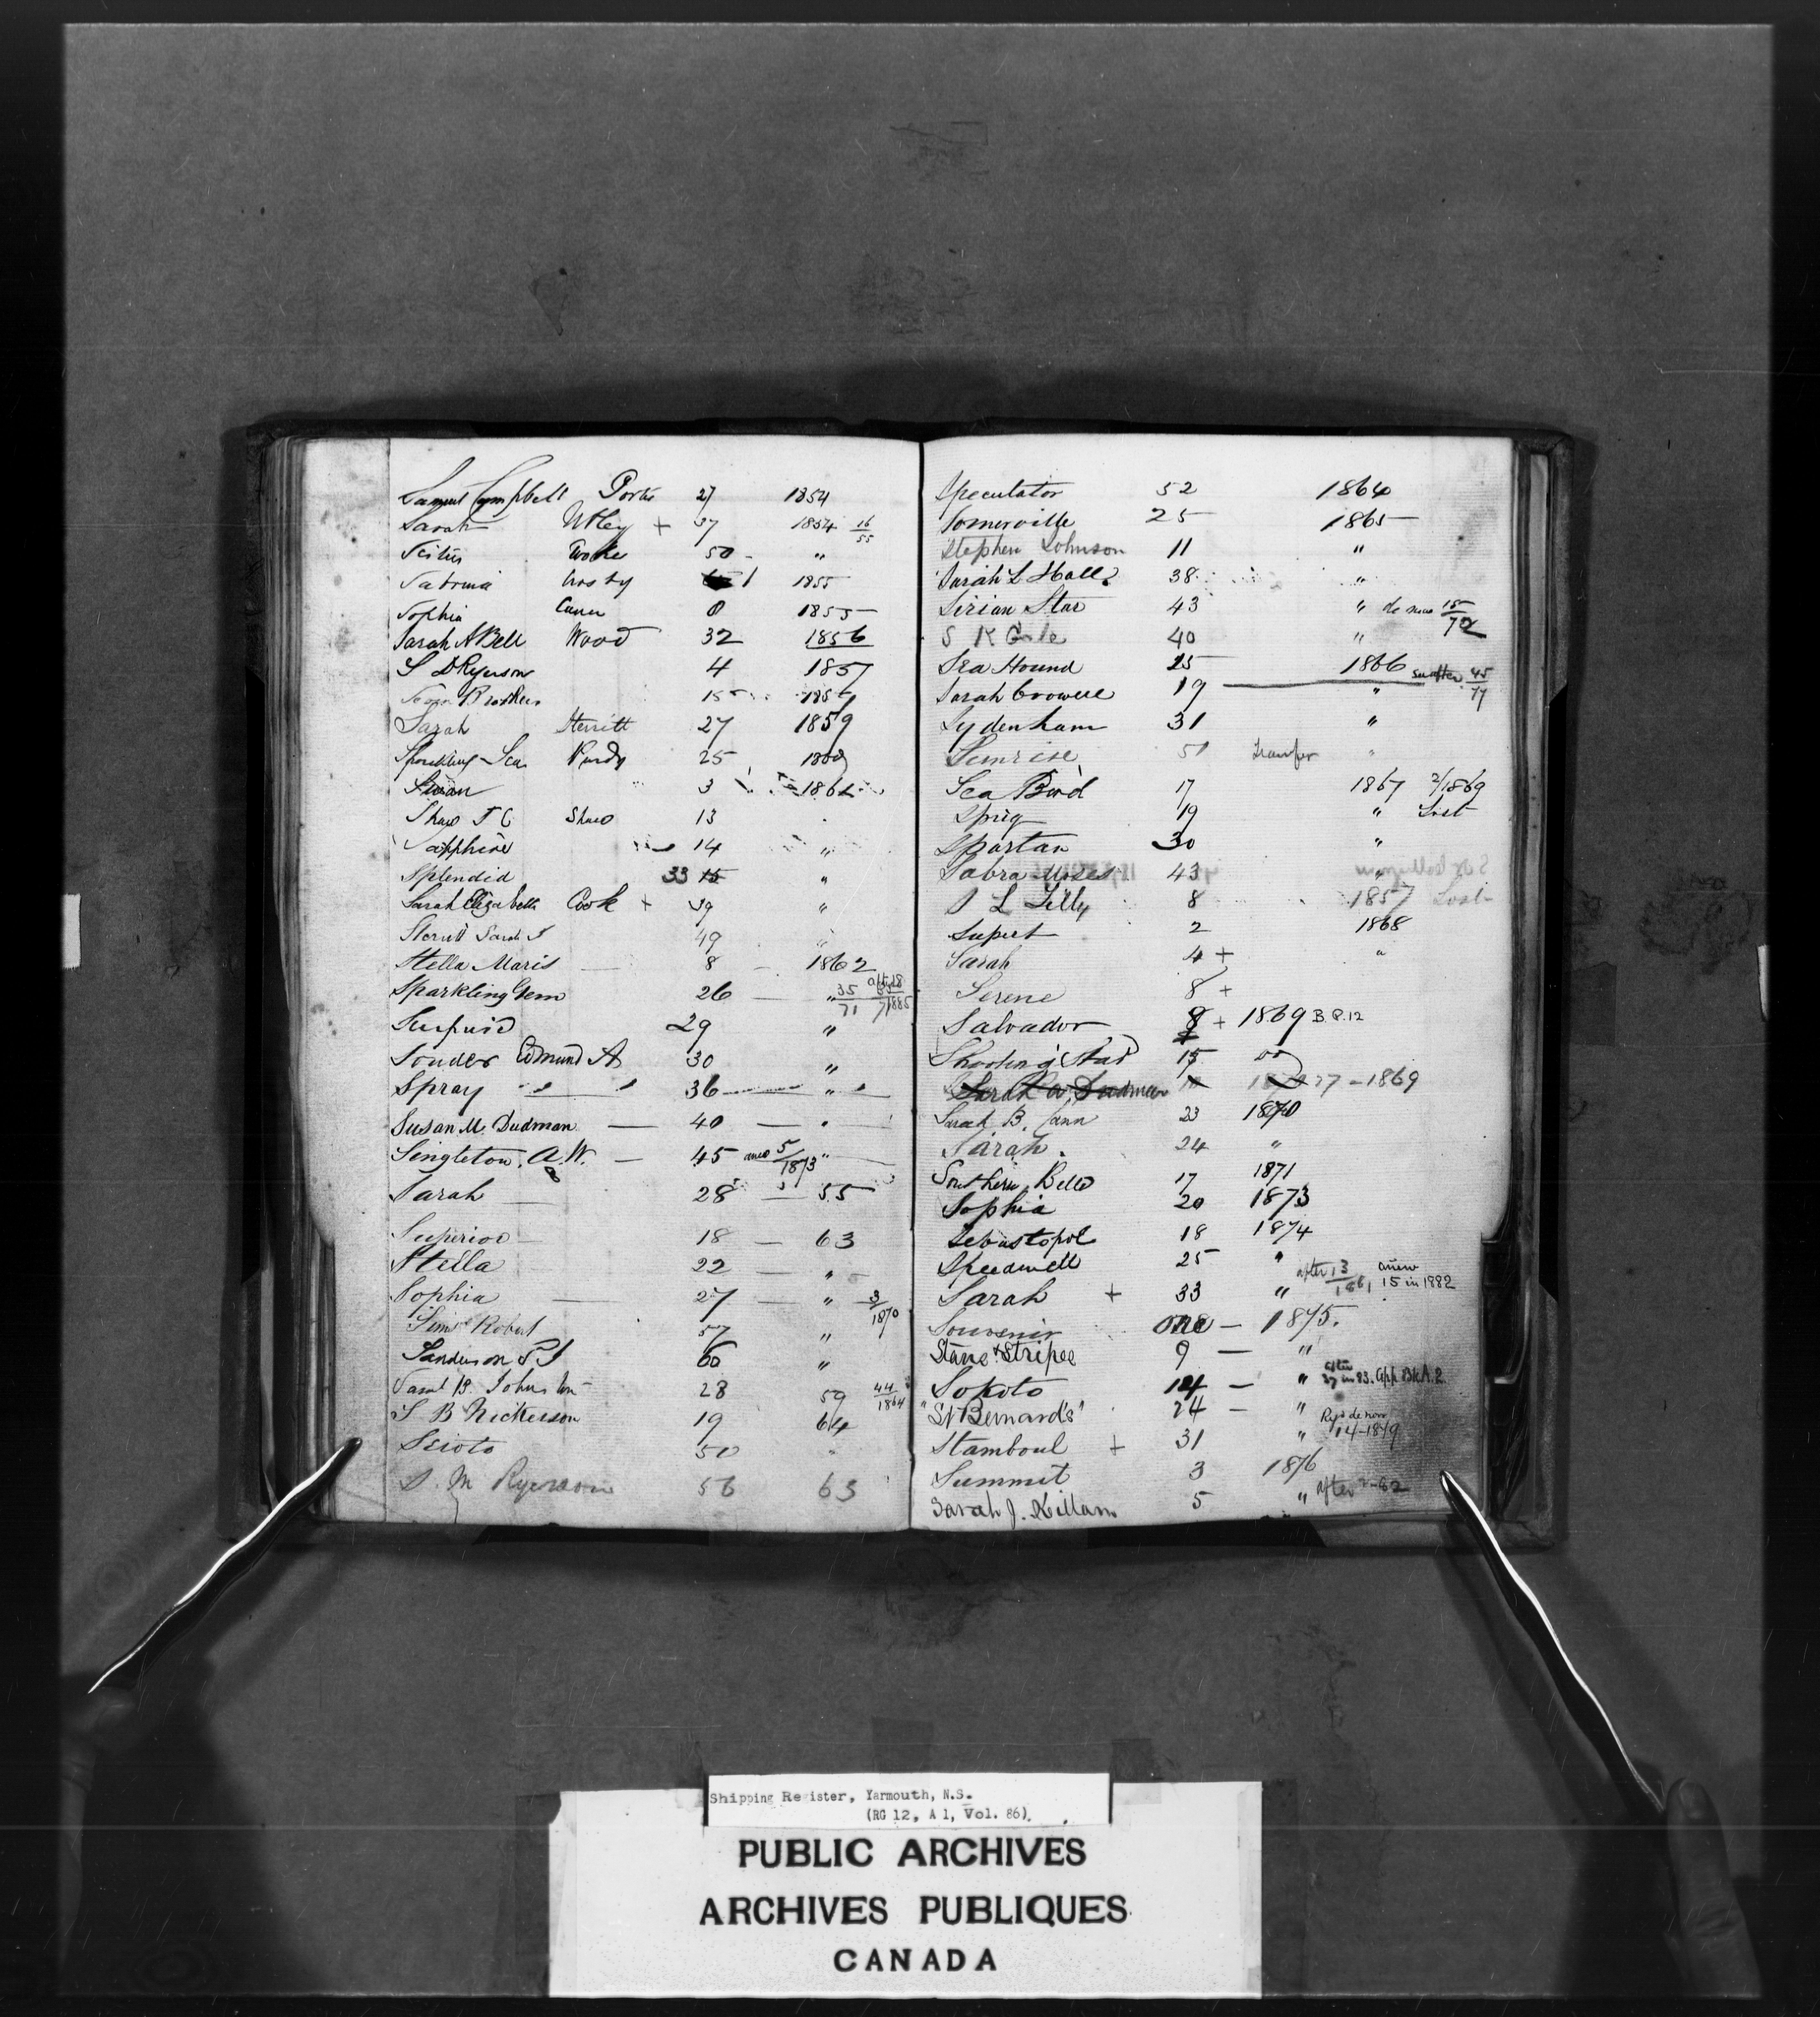 Samuel Campbell Porter 27 1854
Sarah Utley + 37 1854 16/55
50 - "
Sabrina Crosby 1 1855
Sophia Cann 1855
Sarah A Bell Wood 32 1856
S D Ryerson 4 1857
Brothers 15
Sarah Sterritt 27 1859
Sparkling Sea Purdy 25
Swan 3 1862
Shaw T C Shaw 13
Sapphire 14 "
Splendid 33 15 "
Sarah Elizabeth Cook + 39 "
Sterritt Sarah J 49 "
Stella Maris 8 - 1862
Sparkling Gem 26 — " 35/71
29 "
Souder Edmund A 30 "
Spray 36 "
Susan M. Dudman — 40 — "
Singleton, A.W. — 45 anew 5/1873 "
Sarah 28 — 55
Superior 18 — 63
Stella 22 — "
Sophia — 27 — " 3/1870
Robert 57 "
Sanderson S J 60 "
Saml B. Johnston 28 59 44/1864
S B Nickerson 19 64
Scioto 50 "
S. M Ryerson 56 63
Speculator 52 1864
Somerville 25 1865
Stephen Johnson 11 "
Sarah L Hall 38 "
Sirian Star 43 " de novo 15/72
S K 40 "
Sea Hound 25 1866
Sarah Crowell 19 " 45/77
Sydenham 31 "
Sunrise 51 transfer "
Sea Bird 17 1867 2/1869
Sprig 19 " Lost
Spartan 30 "
Sabra Moses 43 "
S L Tilly 8 1857 Lost
2 1868
Sarah 4 + "
Serene 8 +
Salvador 8 + 1869 B.P. 12
Shooting Star 15 do
Sarah A Dudman 27 - 1869
Sarah B. Cann 23 1870
Sarah 24 "
Southern Belle 17 1871
Sophia 20 1873
Sebastopol 18 1874
Speedwell 25 "
Sarah + 33 " after 13/1881 anew 15 in 1882
Souvenir one — 1875.
Stars & Stripes 9 — "
Sokoto 14 — " after 27 in 83. App Bk A. 2
"St Bernards" 24 — "
Stamboul + 31 " Regd de novo 14-1879
Summit 3 1876
Sarah J. Killam 5 " after 2-82
Shipping Register, Yarmouth, N.S.
(RG 12, A 1, Vol. 86).
PUBLIC ARCHIVES
ARCHIVES PUBLIQUES
CANADA